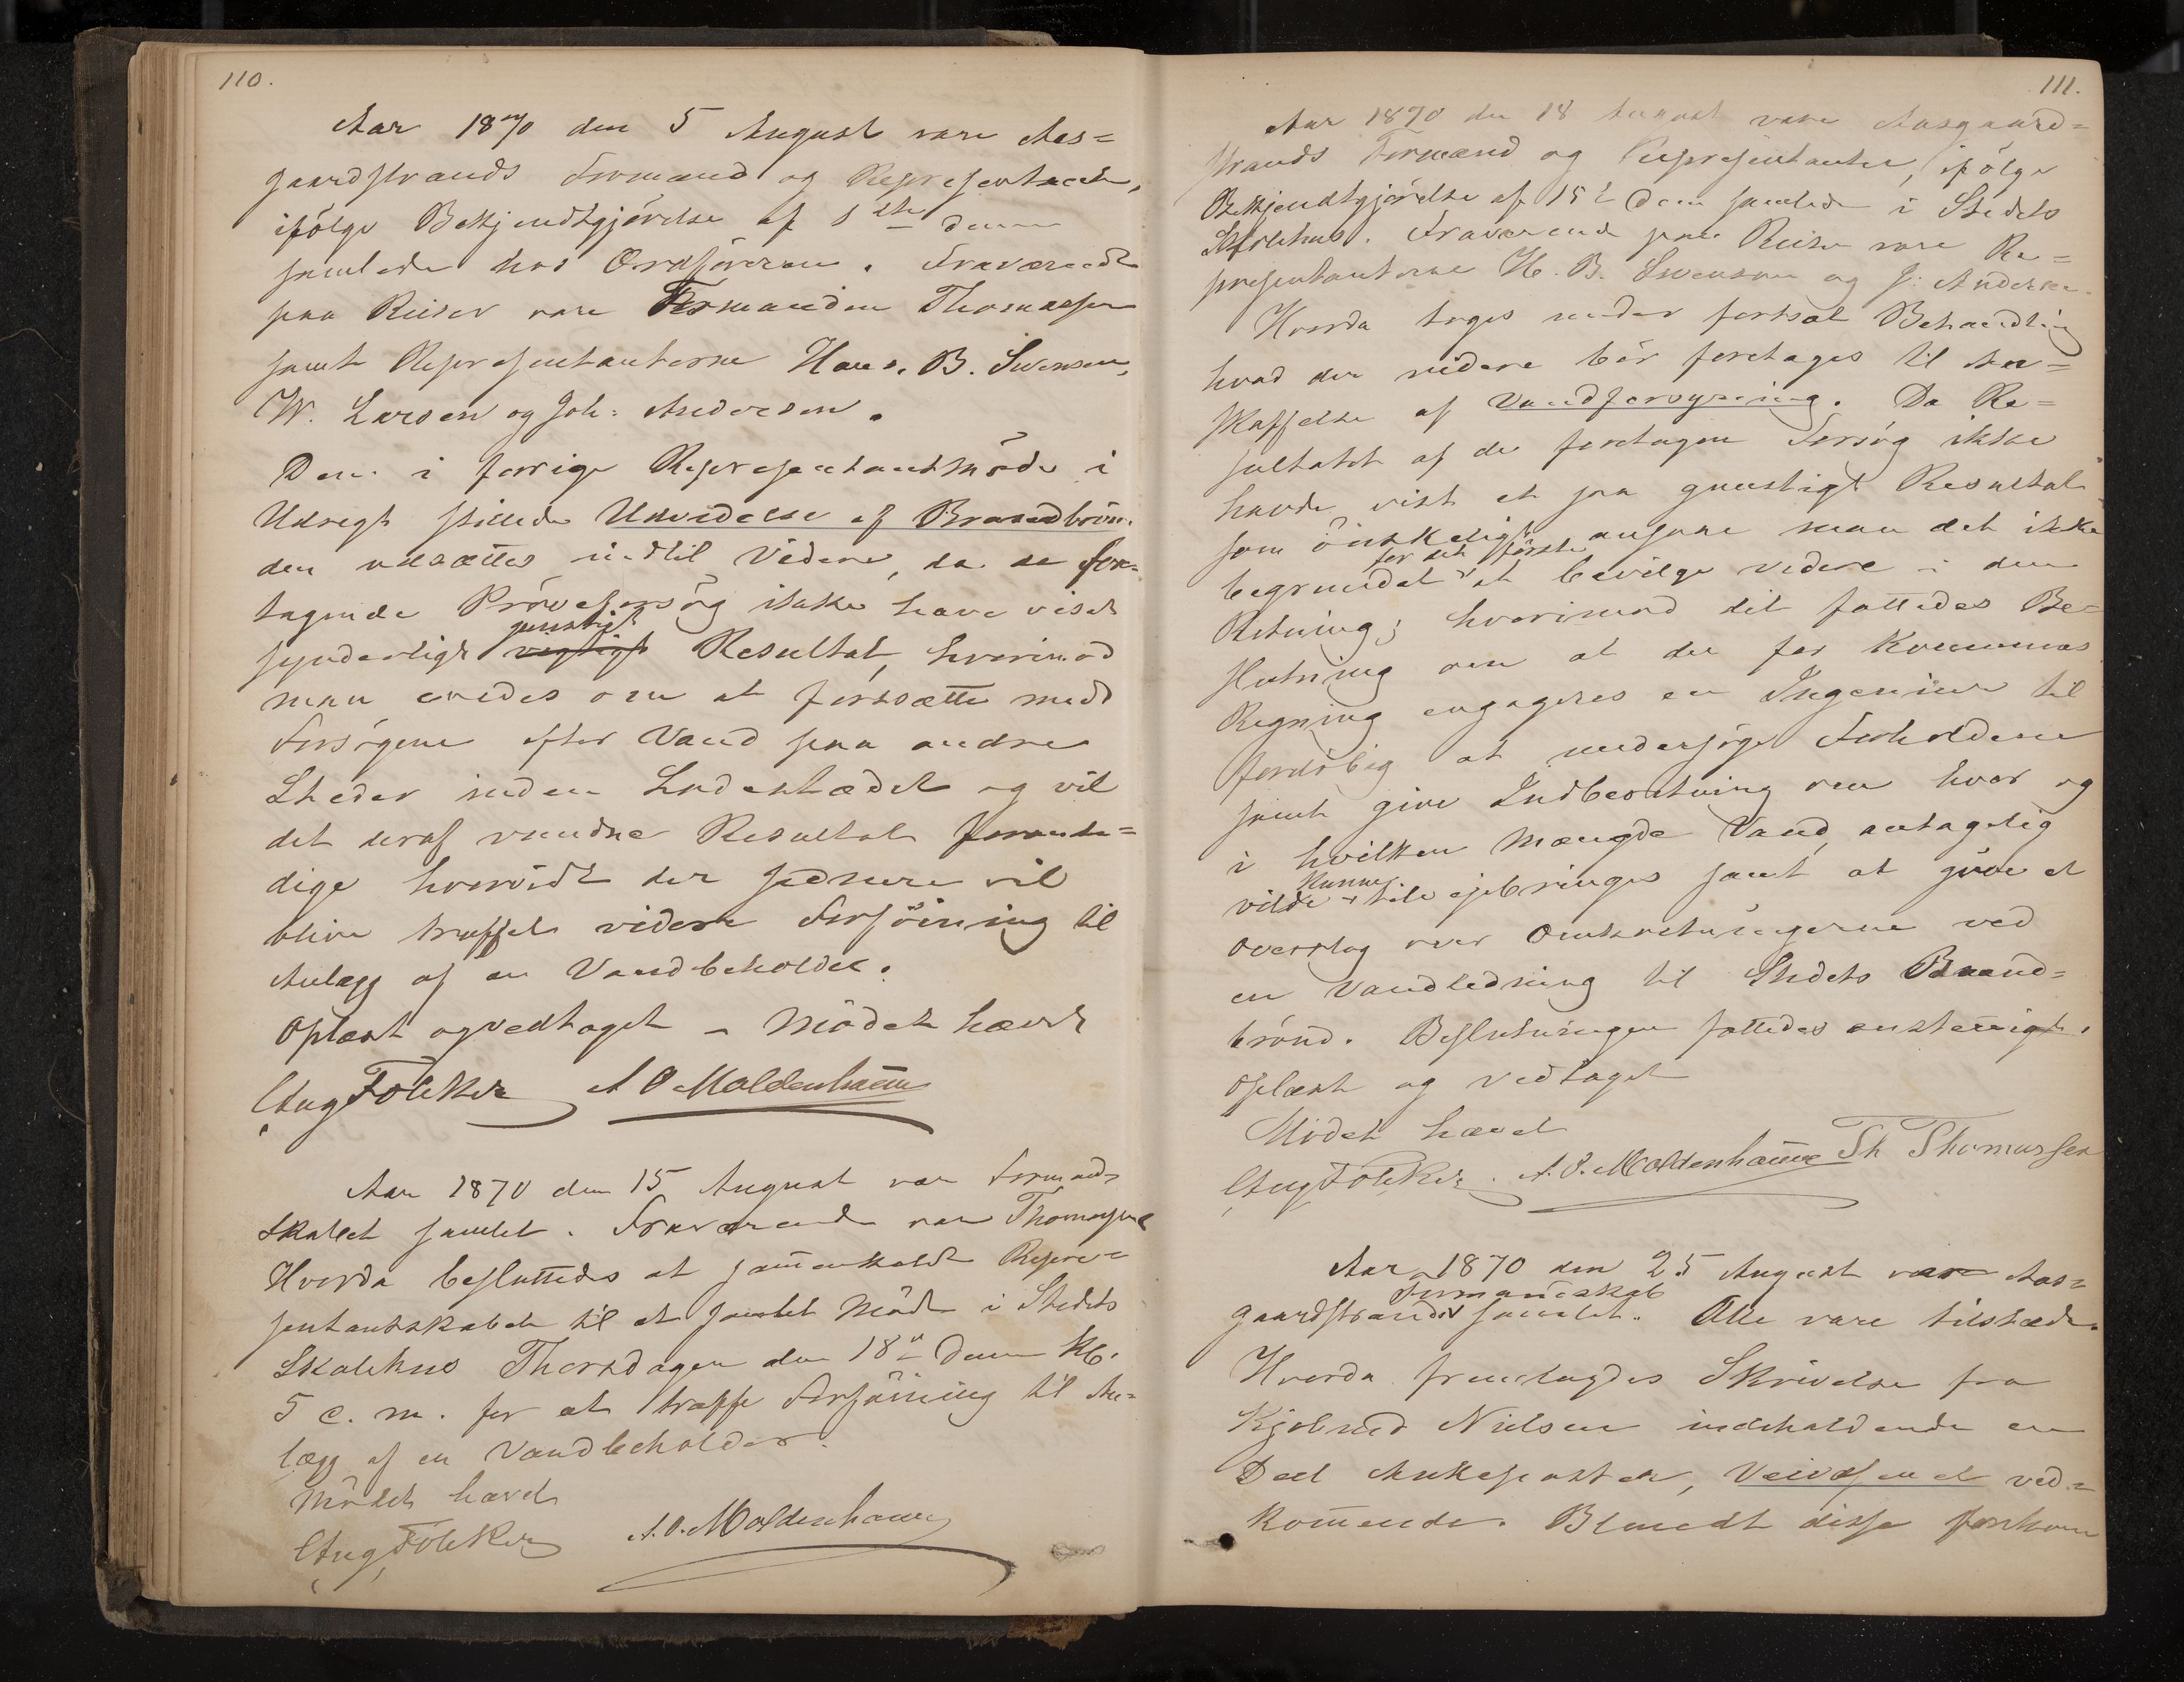 110.
Aar 1870 den 5 August vare Aas=
gaardstrands Formænd og Repræsentanter,
ifölge Bekjendtgjörelse af 1ste dennes
samlede hos Ordföreren. Fraværende
paa Reiser vare Formanden Thomassen
samt Representanterne Hans. B. Svensen,
W. Larsen og Joh: Andersen.
Den i forrige Representantmöde i
Udsigt stillede Udvidelse af Brandbrön-
den udsættes indtil Videre, da de fore-
tagende Pröveforsög ikke have viset
gunstigt
synderligt vigtigt Resultat, hvorimod
man enedes om at fortsætte med
Forsögene efter Vand paa andre
Steder inden Ladestædet og vil
det deraf vundne Resultat
dige hvorvidt der sednere vil
blive truffet videre Forföining til
Anlægg af en Vandbeholder.
Oplæst og vedtaget - Mödet hævet
Aug Földker A O Moldenhauer
Aar 1870 den 15 August var Formand-
skabet samlet. Fraværende var Thomassen
Hvorda besluttedes at sam̄enkalde Repre=
sentantskabet til et samlet Möde i Stedets
Skolehus Thorsdagen den 18de dennes Kl.
5 e. m. for at træffe Forföining til An=
lægg af en Vandbeholder.
Mödet hævet
Aug Földker A. O. Moldenhauer
111.
Aar 1870 den 18 August vare Aasgaard=
strands Formænd og Representanter, ifölge
Bekjendtgjörelse af 15de dens samlede i Stedets
Skolehus. Fraværende paa Reise vare Re=
presentanterne H. B. Svensen og J: Andersen.
Hvorda toges under fortsat Behandling
hvad der videre bör foretages til An=
skaffelse af Vandforsyning. Da Re=
sultatet af de foretagne Forsög ikke
havde vist et saa gunstigt Resultat
som önskeligt ansaae man det ikke
for det förste
begrundet at bevilge videre i den
Retning; hvorimod det fattedes Be=
slutning om at der for Kommunens
Regning engageres en Ingeniör til
forelöbig at undersöge Forholdene
samt give Indberetning om hvor og
i hvilken Mængde Vand, antagelig
kunne
vilde tilveiebringes samt at give et
Overslag over Omkostningerne ved
en Vandledning til Stedets Brand=
brönd. Beslutningen fattedes enstem̄igt.
Oplæst og vedtaget
Mödet hævet
Aug Földker. A. O. Moldenhauer Th Thomassen
Aar 1870 den 25 August var Aas=
Formandskab
gaardstrands samlet. Alle vare tilstæde.
Hvorda fremlagdes Skrivelse fra
Kjöbmd Nielsen indeholdende en
Deel Ankeposter, Veivæsenet ved=
kom̄ende. Blandt disse forekom